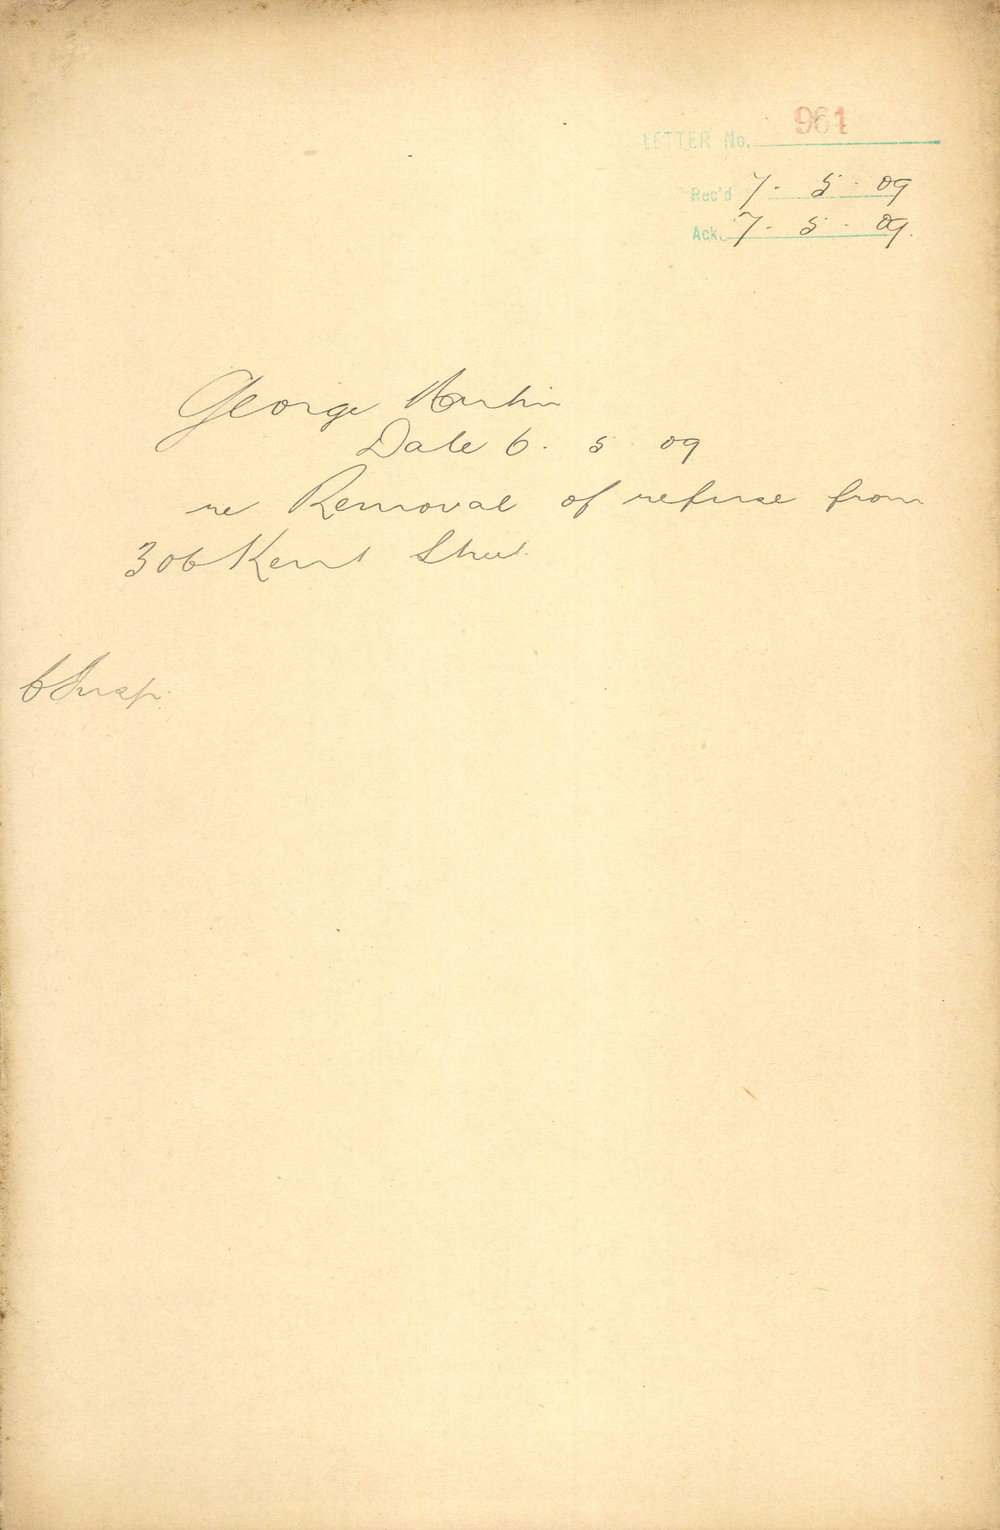 LETTER No. 961
Rec'd 7. 5. 09
Ack. 7. 5. 09.
George Martin
Date 6. 5. 09
re Removal of refuse from
306 Kent Street
C Insp.